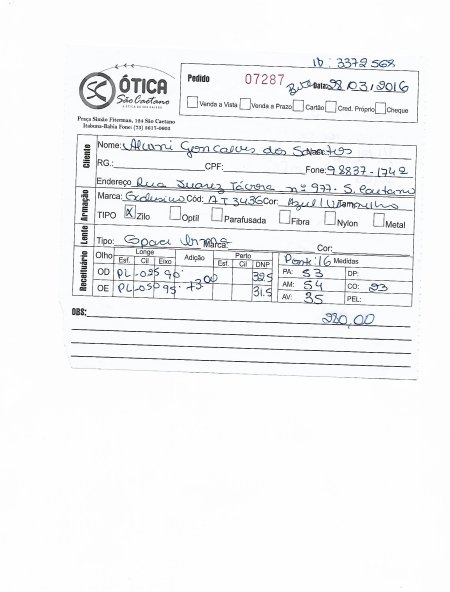 ID: 3372568
ÓTICA
São Caetano
Pedido 07287 Data: 28/03/2016
Venda a Vista Venda a Prazo Cartão Cred. Próprio Cheque
Praça Simão Fiterman, 184 São Caetano
Itabuna-Bahia Fone: (73) 3617-0603
Cliente
Nome: Goncalves dos Santos
RG.: CPF: Fone: 98837-1742
Endereço Rua Juarez Távora nº 977. S. Caetano
Armação
Marca: Exclusivo Cód: AT 3436 Cor: Azul Tamanho
TIPO X Zilo Optil Parafusada Fibra Nylon Metal
Lente
Tipo: Marca: Cor:
Receituário
Olho Longe Adição Perto Pont: 16 Medidas
Esf. Cil Eixo Esf. Cil DNP
OD PL -025 90° +3,00 32.5 PA: 53 DP:
OE PL -050 95° 31.5 AM: 54 CO: 23
AV: 35 PEL:
OBS: 220,00